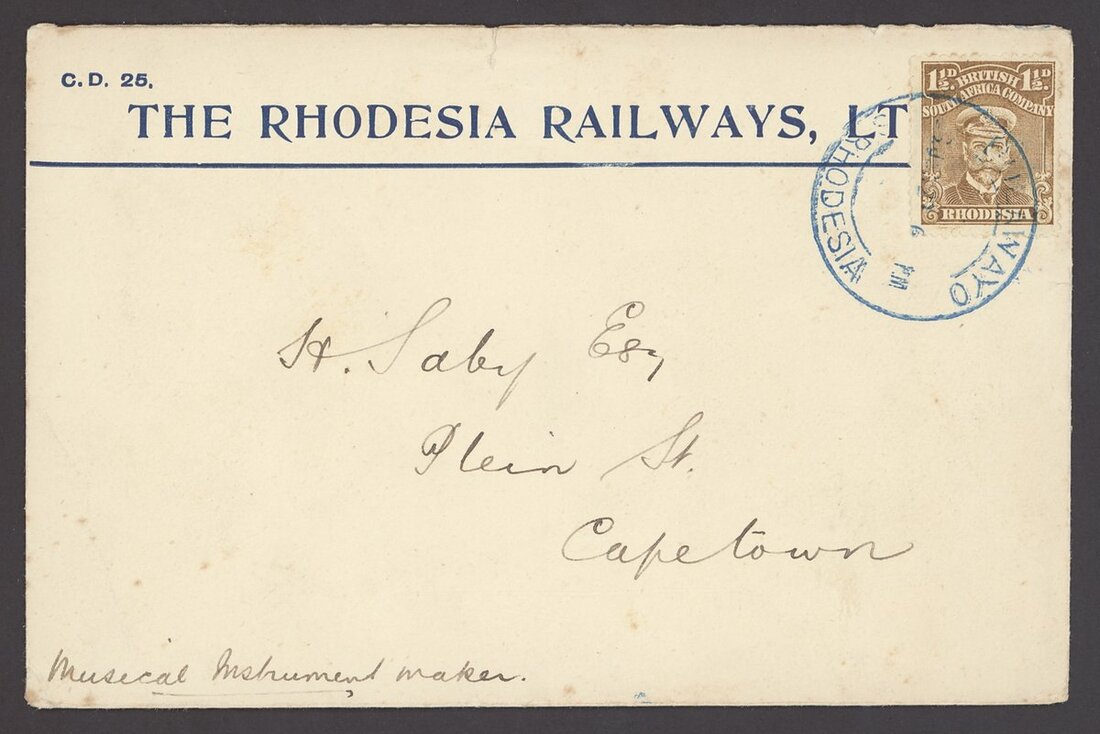 C.D. 25.
THE RHODESIA RAILWAYS, LT
1½D. BRITISH 1½D.
SOUTH AFRICA COMPANY
RHODESIA
S. RHODESIA
BULAWAYO
6
PM
H. Saby Esq
Plein St.
Capetown
Musical Instrument maker.